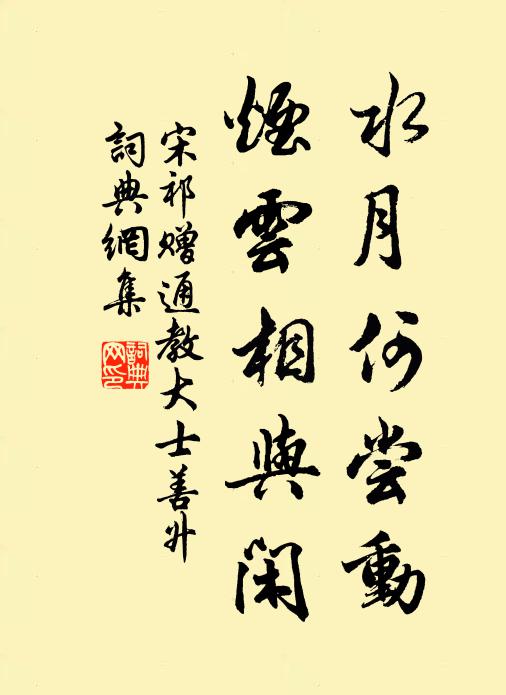 水月何尝動
煙雲相與閑
宋祁贈通教大士善升
詞典網集
詞典网印